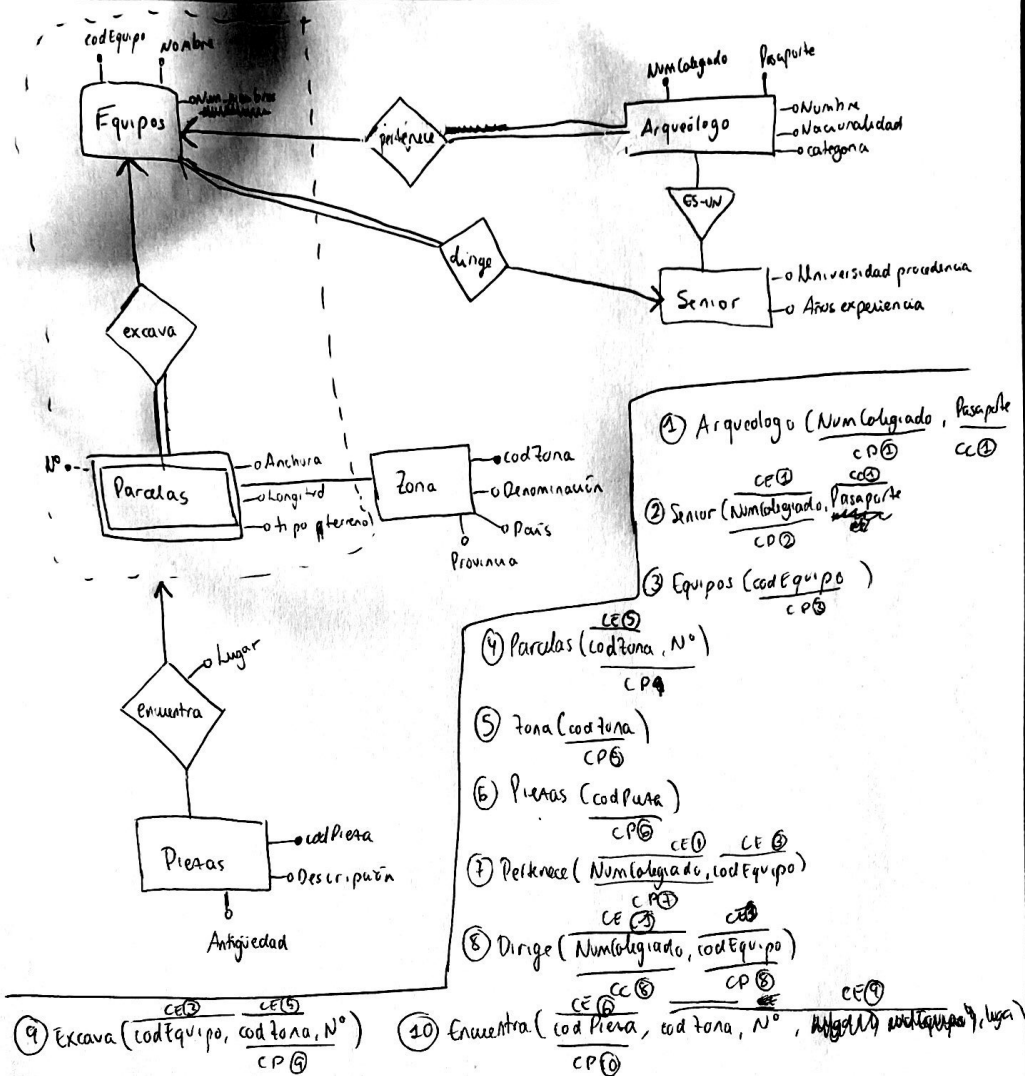 codEquipo
Nombre
Equipos
NumColegiado
Pasaporte
Arqueólogo
Nombre
Nacionalidad
categoria
pertenece
ES-UN
dirige
Senior
Universidad procedencia
Años experiencia
excava
Nº
Parcelas
Anchura
Longitud
tipo terreno
Zona
codZona
Denominación
País
Provincia
Lugar
encuentra
Piezas
codPieza
Descripción
Antigüedad
① Arqueologo (NumColegiado, Pasaporte
CP① CC①
CE① CC①
② Senior (NumColegiado, Pasaporte
CP②
③ Equipos (codEquipo )
CP③
CE⑤
④ Parcelas (codZona, Nº)
CP4
⑤ Zona (codZona)
CP⑤
⑥ Piezas (codPieza)
CP⑥
CE① CE③
⑦ Pertenece (NumColegiado, codEquipo)
CP⑦
CE
⑧ Dirige (NumColegiado, codEquipo)
CC⑧ CP⑧
CE③ CE⑤
⑨ Excava (codEquipo, codZona, Nº)
CP⑨
CE⑥ CE⑨
⑩ Encuentra (cod Pieza, cod Zona, Nº, lugar)
CP⑩